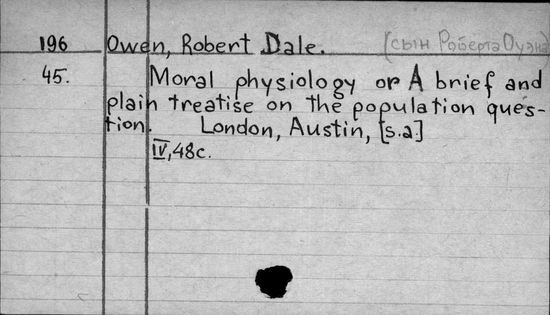 196 Owen, Robert Dale. [сын Роберта Оуэна]
45. Moral physiology or A brief and
plain treatise on the population ques-
tion. London, Austin, [s.a.]
IV, 48c.